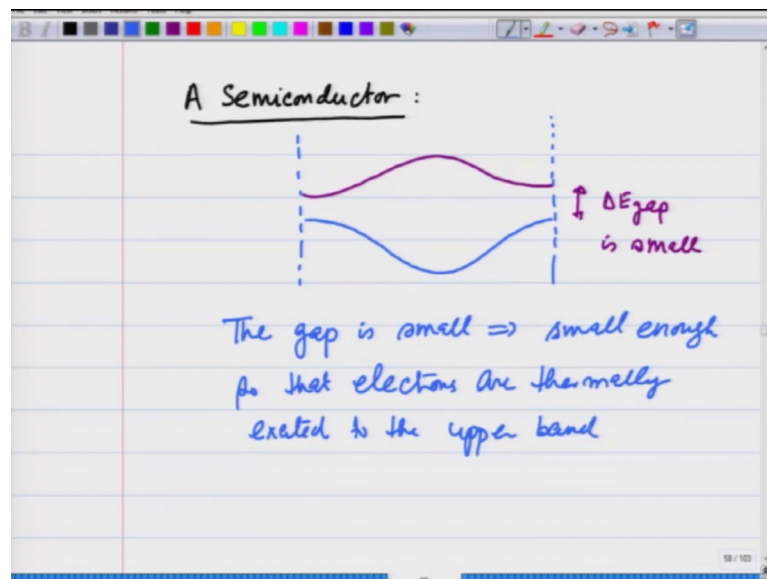 B I
A Semiconductor :
ΔEgap
is small
The gap is small => small enough
so that electrons are thermally
exated to the upper band
58 / 103